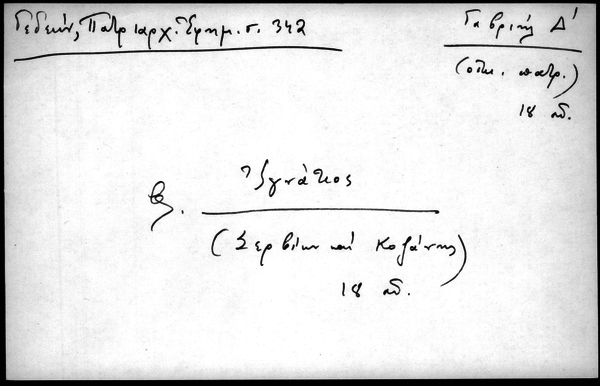 Γεδεών, Πατριαρχ. Ἐφημ. σ. 342
Γαβριήλ Δ΄
(οἰκ. πατρ.)
18 αἰ.
β. Ἰγνάτιος
(Σερβίων καί Κοζάνης)
18 αἰ.